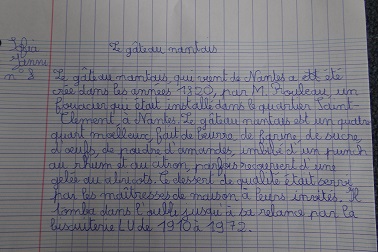 Le gâteau nantais
n° 3
Le gâteau nantais, qui vient de Nantes a été
crée dans les années 1820, par M. Rouleau, un
fouacier qui était installé dans le quartier Saint-
Clément, à Nantes. Le gâteau nantais est un quatre
quart moelleux, fait de beurre, de farine, de sucre,
d'oeufs, de poudre d'amandes, imbibé d'un punch
au rhum et au citron, parfois recouvert d'une
gelée ou abricots. Ce dessert de qualité était servi
par les maîtresses de maison à leurs invités. Il
tomba dans l'oubli jusqu'à sa relance par la
biscuiterie LU de 1910 à 1972.